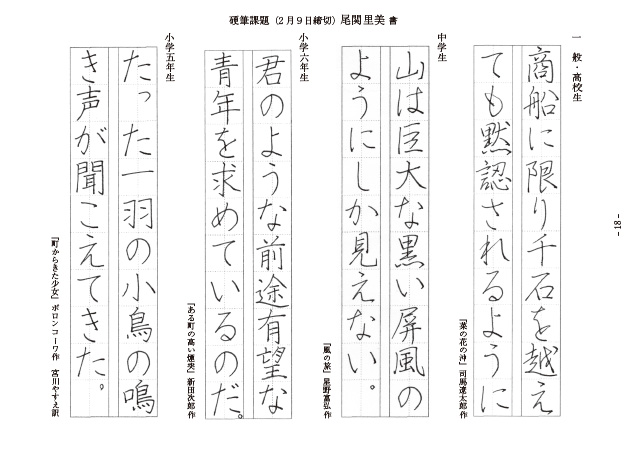 硬筆課題（２月９日締切）尾関里美 書
一般・高校生
商船に限り千石を越え
ても黙認されるように
『菜の花の沖』司馬遼太郎 作
中学生
山は巨大な黒い屏風の
ようにしか見えない。
『風の旅』星野富弘 作
小学六年生
君のような前途有望な
青年を求めているのだ。
『ある町の高い煙突』新田次郎 作
小学五年生
たった一羽の小鳥の鳴
き声が聞こえてきた。
『町からきた少女』ボロンコーワ作　宮川やすえ訳
- 18 -